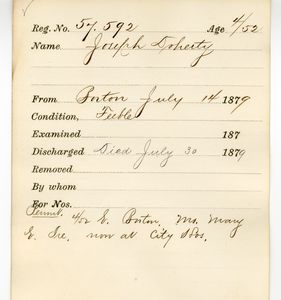 Reg. No. 57.592 Age 4/52
Name Joseph Doherty
From Boston July 14 1879
Condition, Feeble
Examined 187
Discharged Died July 30 1879
Removed
By whom
For Nos.
Permit. 4/52 E. Boston, Ms. Mary
E. Ire. now at City Hos.